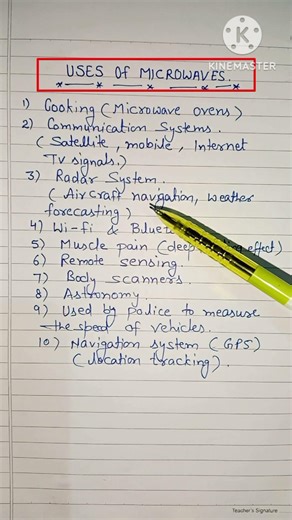 KINEMASTER
USES OF MICROWAVES.
1) Cooking (Microwave ovens)
2) Communication Systems.
(Satellite, mobile, Internet
TV signals.)
3) Radar System.
(Aircraft navigation, weather
forecasting)
4) Wi-fi &
5) Muscle pain (deep effect)
6) Remote sensing.
7) Body scanners.
8) Astronomy.
9) Used by police to measure
the speed of vehicles.
10) Navigation system (GPS)
(location tracking).
Teacher's Signature